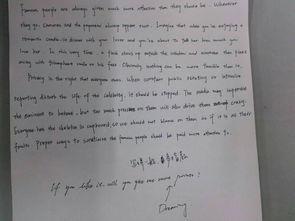 Famous people are always given much more attention than they should be. Wherever
they go, Cameras and the paparazzi always appear too. Imagine that while you're enjoying a
romantic candle-lit dinner with your lover and you're about to tell her how much you
love her. In this very time, a flash shows up outside the window and someone
away with triumphant smile on his face. Obviously nothing can be more terrible than it.
Privacy is the right that everyone owns. When constant public scrutiny or intensive
reporting disturb the life of the celebrity, it should be stopped. The media may supervise
the eminent to behave, but too much pressure on them will also drive them crazy.
Everyone has the skeleton in cupboard, so we should not blame on them as if it is all their
faults. Proper ways to scrutinize the famous people should be paid more attention to.
If you like it, will you give me more
Dreaming